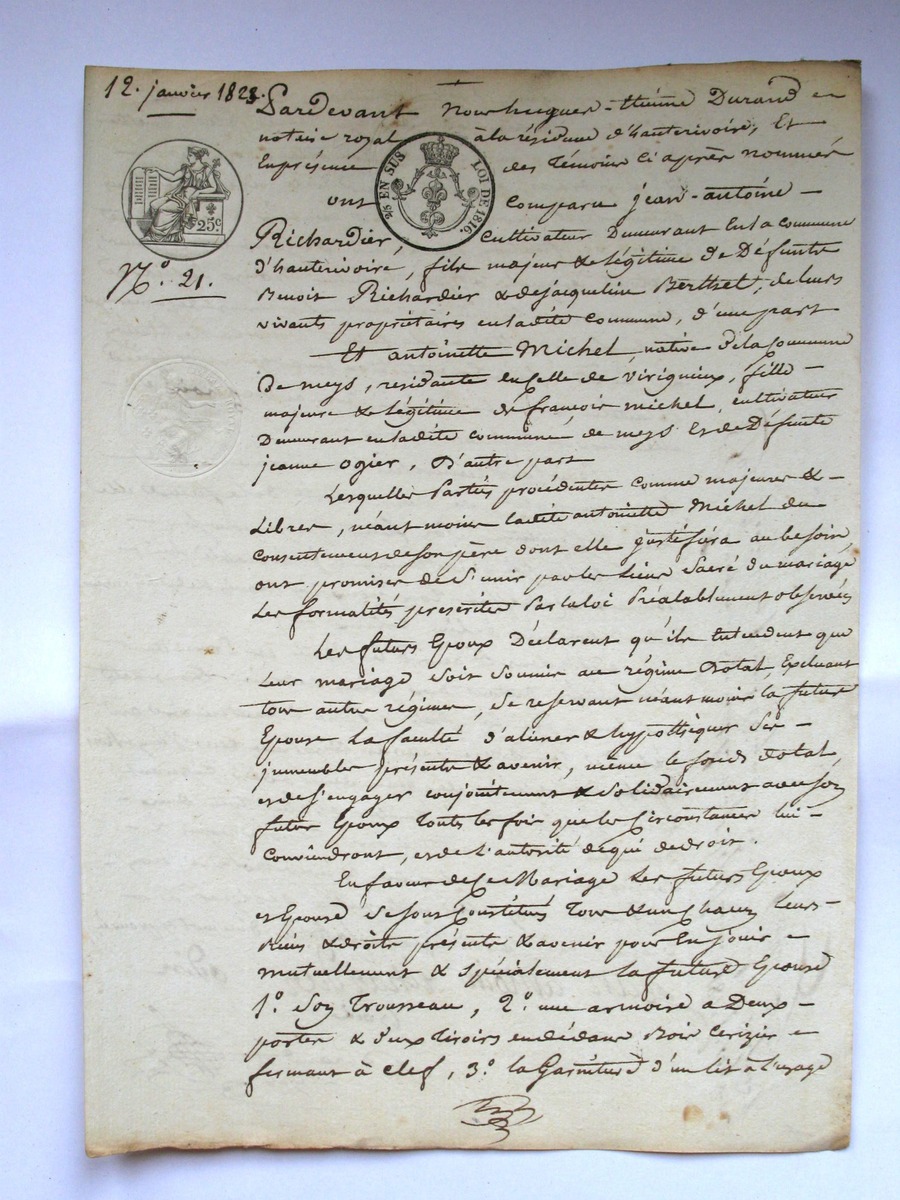 12. janvier 1828.
Pardevant Nous hugues-Etienne Durand
notaire royal à la résidence d'hauterivoire, Et
En présence des Temoins ci après nommés
ont Comparu jean-antoine
Richardier, Cultivateur Demeurant En la commune
d'hauterivoire, fils majeur & légitime de Défunts
Benoit Richardier & de jacqueline Berthet, de leurs
vivants propriétaires en ladite Commune, d'une part
Et antoinette Michel, native de la Commune
De meys, residante en Celle de Virigneux, fille
majeure & légitime de françois michel, cultivateur
Demeurant en ladite commune de meys et de Défunte
jeanne ogier, D'autre part
Lesquelles Parties procédentes comme majeures &
Libres, néant moins ladite antoinette Michel du
Consentement de Son père dont elle justifira au besoin,
ont promises de S'unir par les Liens Sacré du mariage
Les formalités prescrites Par la loi Préalablement observées
Les futurs Epoux Déclarent qu'ils Entendent que
Leur mariage Soit Soumis au régime Dotal, Excluant
Tous autres régimes, Se reservant néant moins la future
Epouse La faculté d'aliéner & hypothéquer Ses
jmmeubles présents & avenir, même le fonds dotal,
et de S'engager conjointement & Solidairement avec Son
futur Epoux Toutes les fois que les Circonstances lui
Conviendront, et de l'autorité de qui de droit.
En faveur de Ce Mariage Les futurs Epoux
et Epouse Se sont Constitués Tous & un Chacun leurs
Biens & droits présents & avenir pour En jouir
mutuellement & spécialement la future Epouse
1.° Son Trousseau, 2.° une armoire a Deux
portes & deux Tiroirs en dédans Bois Cerizier
fermant à clef, 3.° la Garniture d'un lit à l'usage
25c
N.° 21.
2/5 EN SUS
LOI DE 1816.